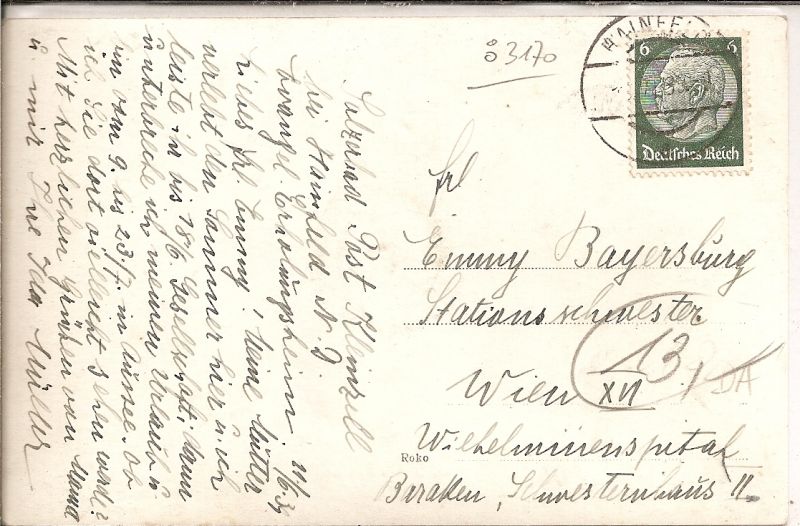 Salzerbad Post Kleinzell
bei Hainfeld N. D.
Evangel Erholungsheim 11/6.39
Liebes Frl. Emmy! Meine Mutter
verlebt den Sommer hier u. ich
leiste ih bis 18/6 Gesellschaft, dann
unterbreche ich meinen Urlaub u
bin vom 9. bis 23/7. in Aussee. Ob
ich Sie dort vielleicht sehen werde?
Mit herzlichen Grüßen von Mama
u. mir Ihre Müller
8 3170
HAINFELD
6 6
Deutsches Reich
Frl
Emmy Bayersburg
Stationsschwester
Wien XVI
13
DA
Wilhelminenspital
Baraken, Schwesternhaus II.
Roko